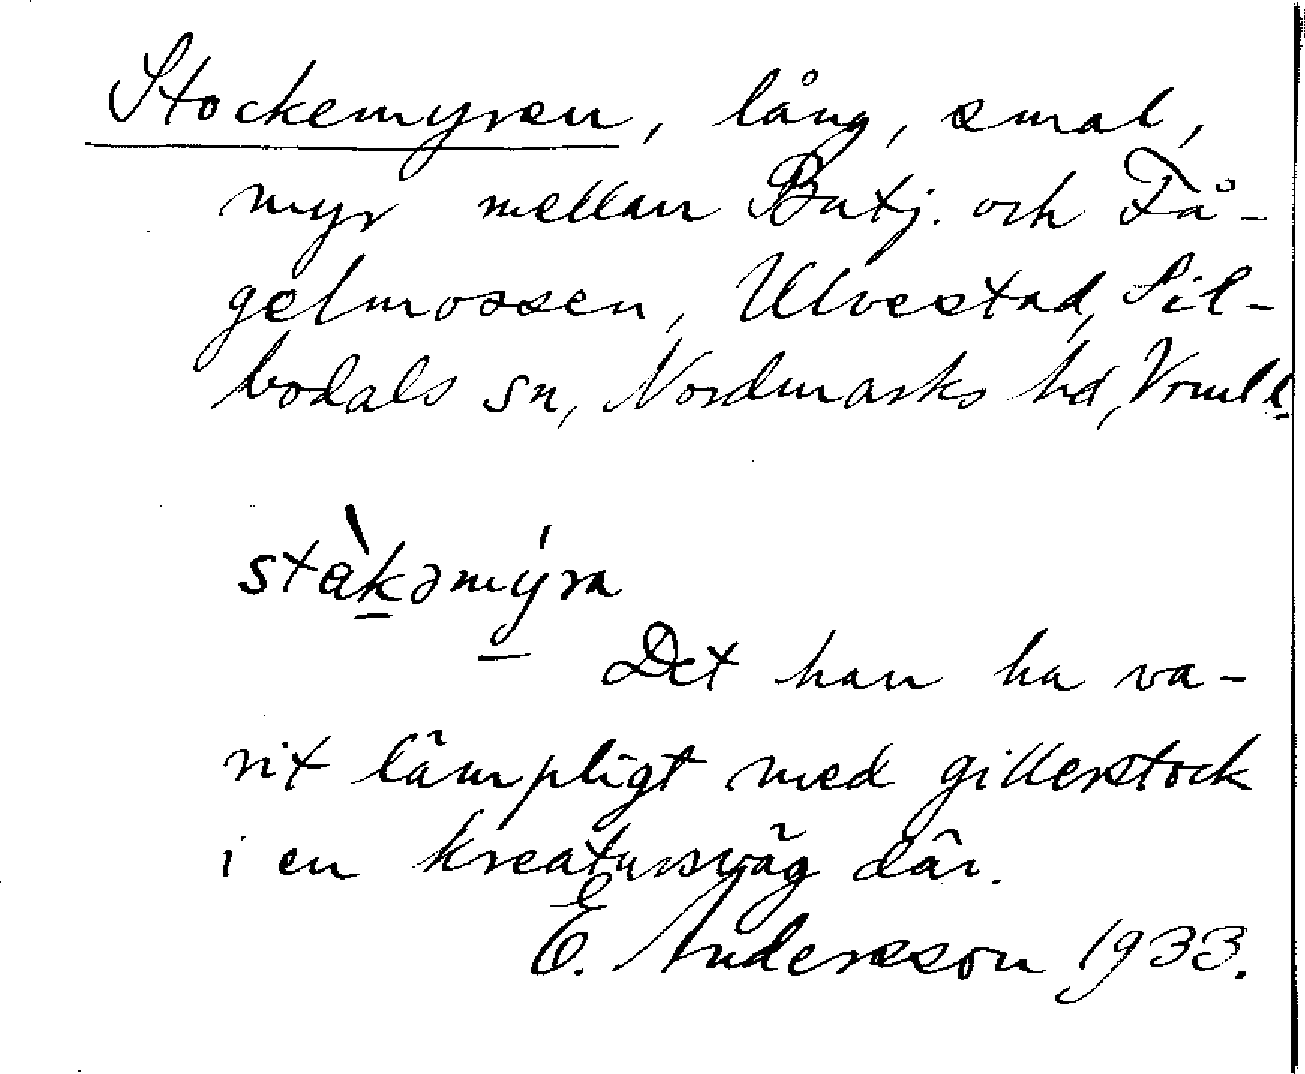 Stockemyren, lång, smal,
myr mellan Butj. och Få-
gelmossen, Ulvestad, Sil-
bodals sn, Nordmarks hd, Vrml l.
stàkəmýra
Det kan ha va-
rit lämpligt med gillerstock
i en kreatursväg där.
E. Andersson 1933.